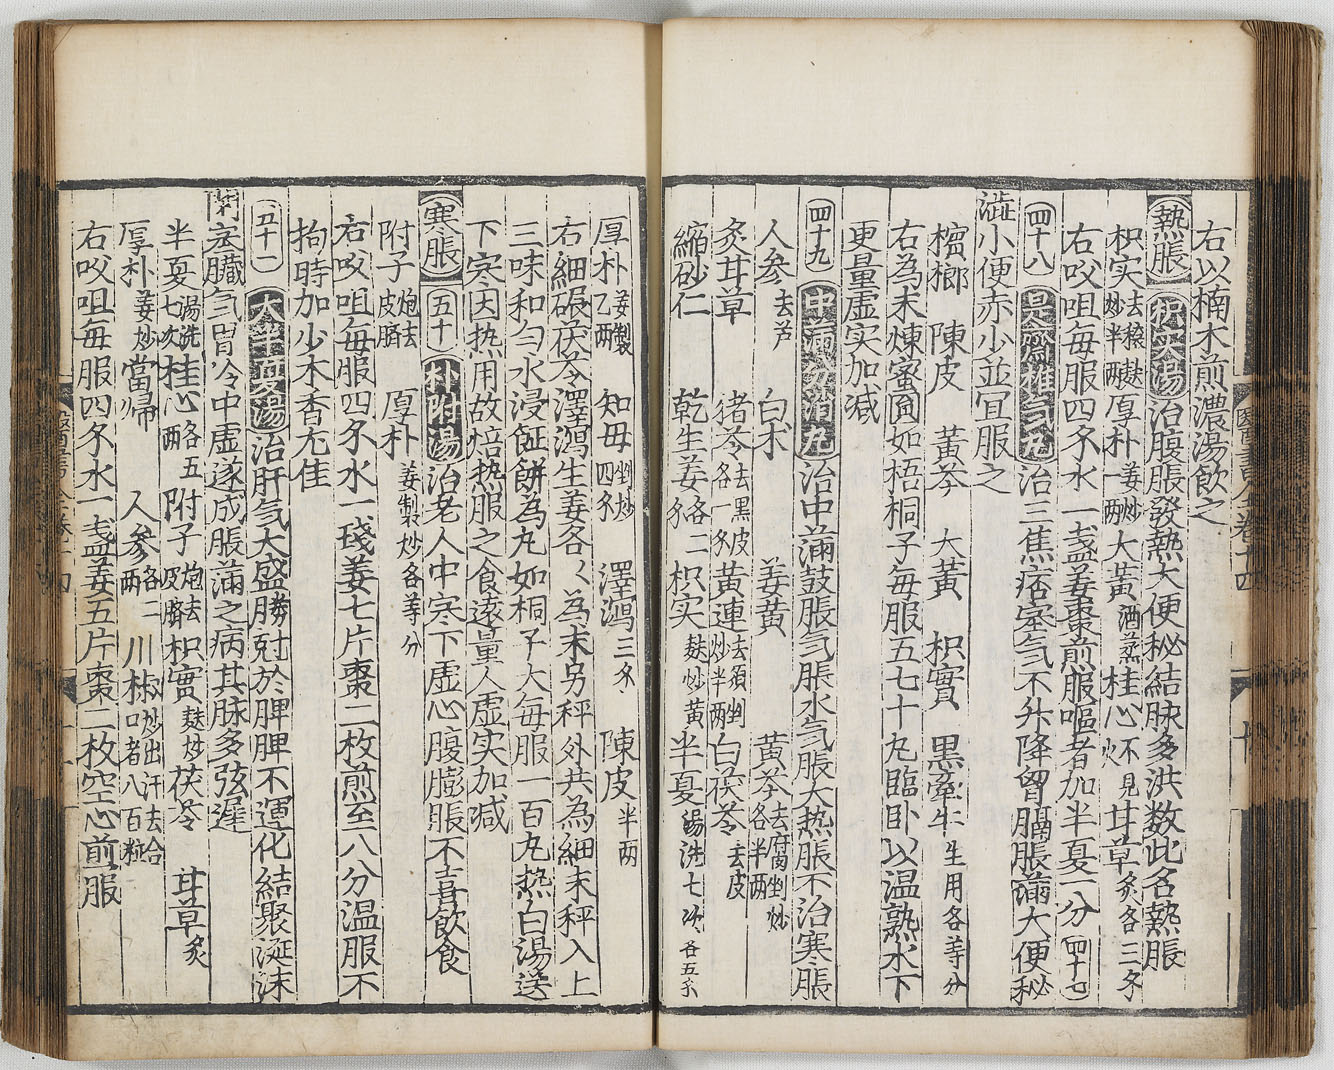 右以楠木煎濃湯飲之
熱脹 枳实湯 治腹脹發熱大便秘結脉多洪数此名熱脹
枳实去穰麸炒半兩 厚朴姜炒一兩 大黃酒蒸 桂心不見火 甘草炙各三㐱
右㕮咀每服四㐱水一盞姜棗煎服嘔者加半夏一分 四十七
四十八 是齋推气丸 治三焦痞塞气不升降胷膈脹滿大便秘
澁小便赤小並宜服之
檳榔 陳皮 黃芩 大黃 枳實 黑牽牛生用各等分
右為末煉蜜圓如梧桐子每服五七十丸臨卧以温熟水下
更量虚实加减
四十九 中滿分消丸 治中滿鼓脹气脹水气脹大热脹不治寒脹
人参去芦 白术 姜黃 黃芩去腐剉炒各半兩
炙甘草 猪苓去黑皮各一㐱 黃連去須剉炒半兩 白茯苓去皮
縮砂仁 乾生姜各二㐱 枳实麸炒黃 半夏湯洗七次各五㐱
厚朴姜製乙兩 知母剉炒四㐱 澤瀉三㐱 陳皮半兩
右細碾茯苓澤瀉生姜各〻為末另秤外共為細末秤入上
三味和勻水浸飪餅為丸如桐子大每服一百丸热白湯送
下寒因热用故焙热服之食遠量人虚实加减
寒脹 五十 朴附湯 治老人中寒下虚心腹膨脹不喜飲食
附子炮去皮臍 厚朴姜製炒各等分
右㕮咀每服四㐱水一琖姜七片棗二枚煎至八分温服不
拘時加少木香尤佳
五十一 大半夏湯 治肝气大盛勝尅於脾脾不運化結聚涎沫
閉塞臟气胃冷中虚遂成脹滿之病其脉多弦遲
半夏湯洗七次 桂心各五兩 附子炮去皮臍 枳實麸炒 茯苓 甘草炙
厚朴姜炒 當帰 人参各二兩 川椒炒出汗去合口者八百粒
右㕮咀每服四㐱水一盞姜五片棗二枚空心前服